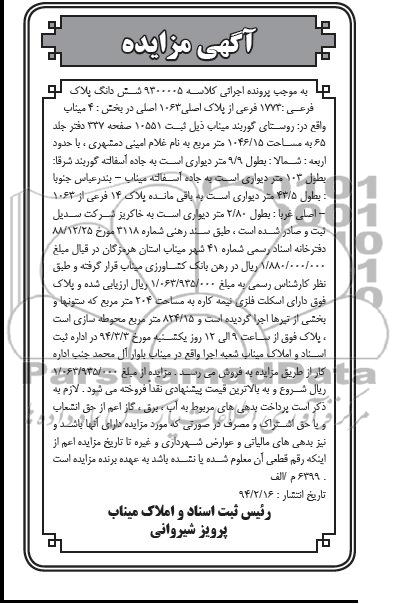 آگهی مزایده
به موجب پرونده اجرائی کلاسه ۹۳۰۰۰۰۵ شش دانگ پلاک
فرعی :۱۷۷۳ فرعی از پلاک اصلی۱۰۶۳ اصلی در بخش : ۴ میناب
واقع در: روستای گوربند میناب ذیل ثبت ۱۰۵۵۱ صفحه ۳۳۷ دفتر جلد
۶۵ به مساحت ۱۰۴۶/۱۵ متر مربع به نام غلام امینی دمشهری ، با حدود
اربعه : شمالا : بطول ۹/۹ متر دیواری است به جاده آسفالته گوربند شرقا:
بطول ۱۰۳ متر دیواری است به جاده آسفالته میناب – بندرعباس جنوبا
: بطول ۴۳/۵ متر دیواری است به باقی مانده پلاک ۱۴ فرعی از ۱۰۶۳
– اصلی غربا : بطول ۲/۸۰ متر دیواری است به خاکریز شرکت سدیل
ثبت و صادر شده است ، طبق سند رهنی شماره ۳۱۱۸ مورخ ۸۸/۱۲/۲۵
دفترخانه اسناد رسمی شماره ۴۱ شهر میناب استان هرمزگان در قبال مبلغ
۱/۸۸۰/۰۰۰/۰۰۰ ریال در رهن بانک کشاورزی میناب قرار گرفته و طبق
نظر کارشناس رسمی به مبلغ ۱/۰۶۳/۹۳۵/۰۰۰ ریال ارزیابی شده و پلاک
فوق دارای اسکلت فلزی نیمه کاره به مساحت ۲۰۴ متر مربع که ستونها و
بخشی از تیرها اجرا گردیده است و ۸۲۴/۱۵ متر مربع محوطه سازی است
، پلاک فوق از ساعت ۹ الی ۱۲ روز یکشنبه مورخ ۹۴/۳/۳ در اداره ثبت
اسناد و املاک میناب شعبه اجرا واقع در میناب بلوار آل محمد جنب اداره
کار از طریق مزایده به فروش می رسد . مزایده از مبلغ ۱/۰۶۳/۹۳۵/۰۰۰
ریال شروع و به بالاترین قیمت پیشنهادی نقدا فروخته می شود . لازم به
ذکر است پرداخت بدهی های مربوط به آب ، برق ، گاز اعم از حق انشعاب
و یا حق اشتراک و مصرف در صورتی که مورد مزایده دارای آنها باشد و
نیز بدهی های مالیاتی و عوارض شهرداری و غیره تا تاریخ مزایده اعم از
اینکه رقم قطعی آن معلوم شده یا نشده باشد به عهده برنده مزایده است
. ۶۳۹۹ م /الف
تاریخ انتشار : ۹۴/۲/۱۶
رئیس ثبت اسناد و املاک میناب
پرویز شیروانی